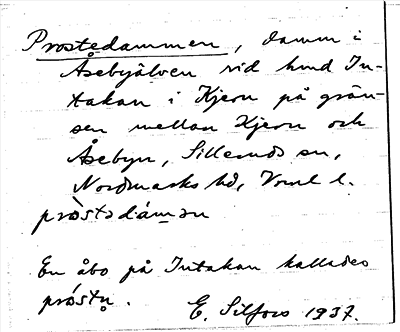 Prostedammen, damm i
Åsebyälven vid hmd In-
takan i Kjern på grän-
sen mellan Kjern och
Åsebyn, Sillerud sn,
Nordmarks hd, Vrml l.
pròstədámən
En åbo på Intakan kallades
próstn̥.
E. Silfors 1937.